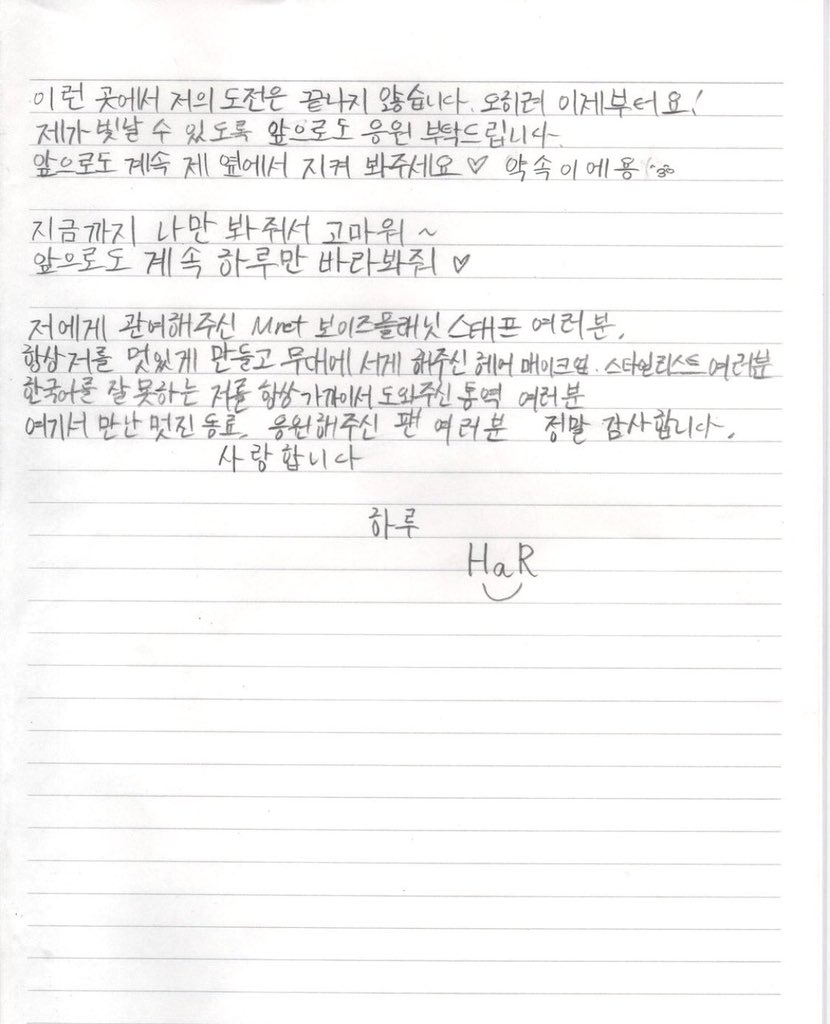 이런 곳에서 저의 도전은 끝나지 않습니다. 오히려 이제부터요!
제가 빛날 수 있도록 앞으로도 응원 부탁드립니다.
앞으로도 계속 제 옆에서 지켜 봐주세요 ♡ 약속이에용
지금까지 나만 봐줘서 고마워 ~
앞으로도 계속 하루만 바라봐줘 ♡
저에게 관여해주신 Mnet 보이즈플래닛 스태프 여러분,
항상 저를 멋있게 만들고 무대에 서게 해주신 헤어 메이크업. 스타일리스트 여러분
한국어를 잘 못하는 저를 항상 가까이서 도와주신 통역 여러분
여기서 만난 멋진 동료, 응원해주신 팬 여러분 정말 감사합니다.
사랑합니다
하루
HaR